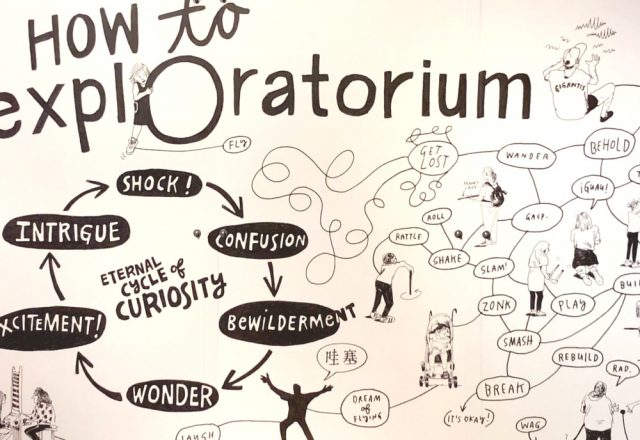 HOW to
explOratorium
GIGANTIC
FLY
GET
LOST
WANDER
BEHOLD
SHOCK!
INTRIGUE
CONFUSION
ETERNAL
CYCLE of
CURIOSITY
XCITEMENT!
BEWILDERMENT
WONDER
ROLL
RATTLE
SHAKE
GASP.
¡GUAU!
SLAM!
ZONK
PLAY
BUI
SMASH
REBUILD
RAD.
BREAK
IT'S OKAY!
WAG
哇塞
DREAM
of
FLYING
LAUGH